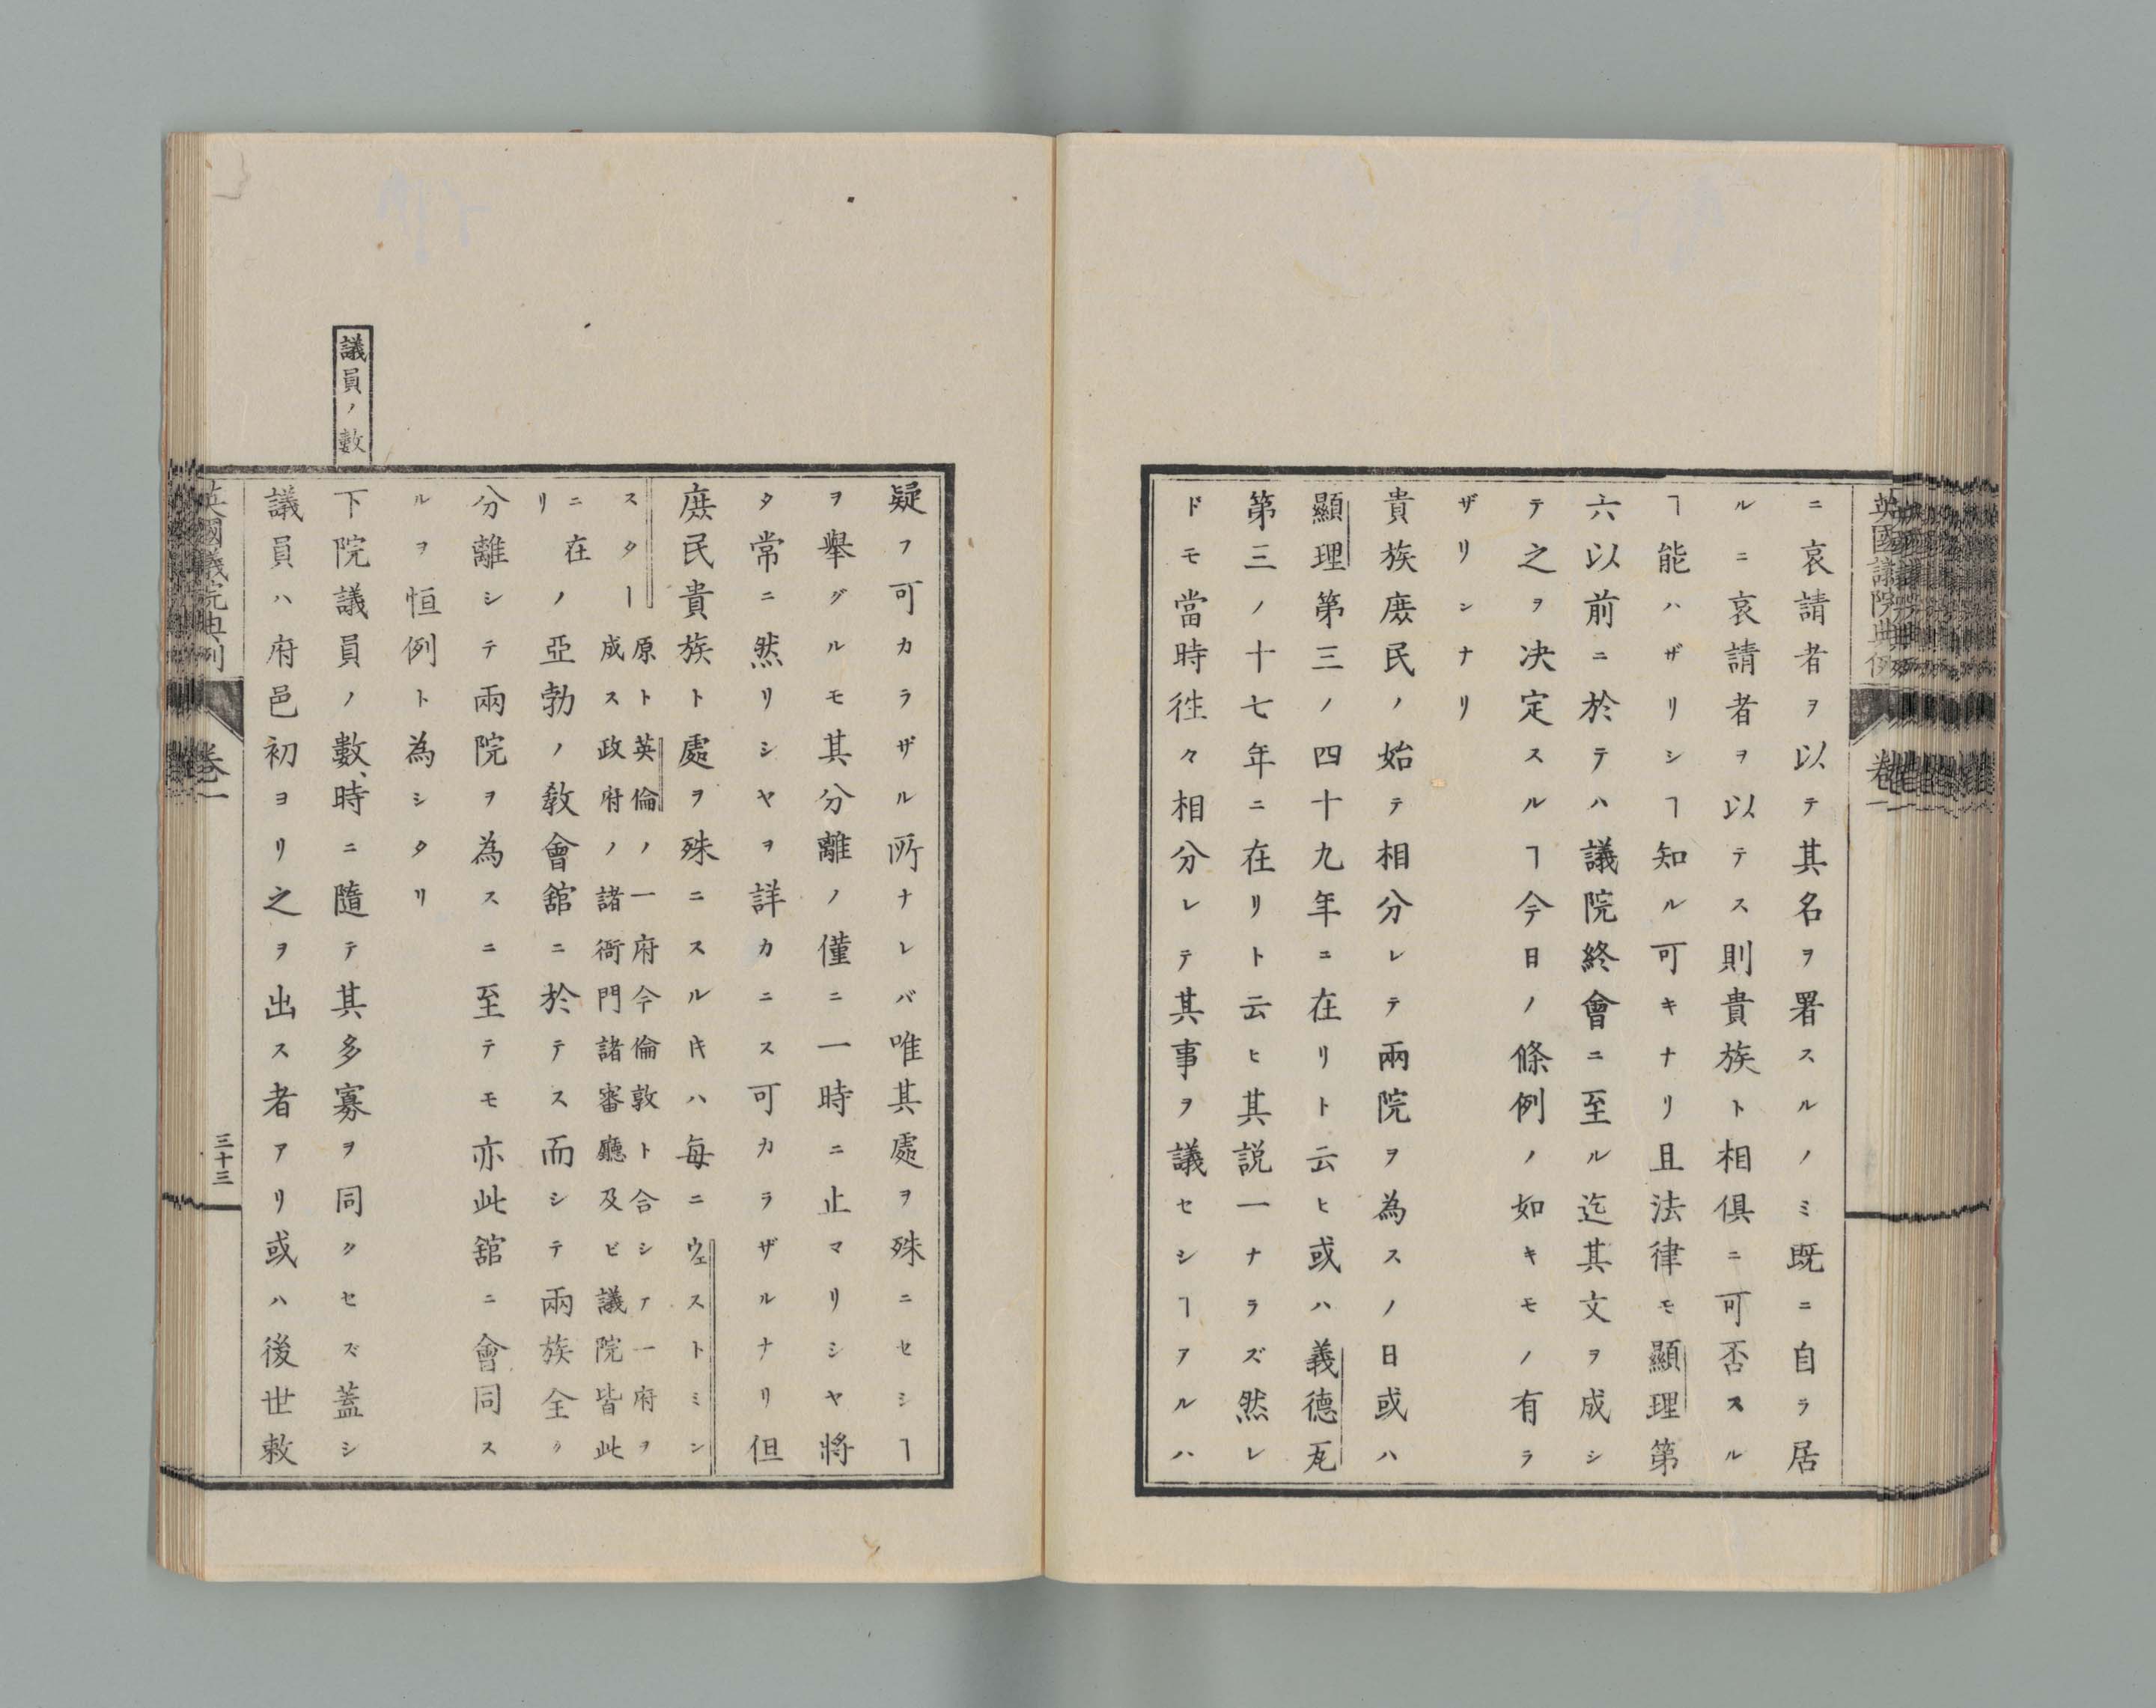 英國議院典例
卷一
ニ哀請者ヲ以テ其名ヲ署スルノミ既ニ自ラ居
ルニ哀請者ヲ以テス則貴族ト相俱ニ可否スル
ヿ能ハザリシヿ知ル可キナリ且法律モ顯理第
六以前ニ於テハ議院終會ニ至ル迄其文ヲ成シ
テ之ヲ决定スルヿ今日ノ條例ノ如キモノ有ラ
ザリシナリ
貴族庶民ノ始テ相分レテ兩院ヲ為スノ日或ハ
顯理第三ノ四十九年ニ在リト云ヒ或ハ義德瓦
第三ノ十七年ニ在リト云ヒ其説一ナラズ然レ
ドモ當時徃々相分レテ其事ヲ議セシヿアルハ
疑フ可カラザル所ナレバ唯其處ヲ殊ニセシヿ
ヲ舉グルモ其分離ノ僅ニ一時ニ止マリシヤ將
タ常ニ然リシヤヲ詳カニス可カラザルナリ但
庶民貴族ト處ヲ殊ニスルキハ每ニウェストミン
スター
原ト英倫ノ一府今倫敦ト合シア一府ヲ
成ス政府ノ諸衙門諸審廳及ビ議院皆此
ニ在
リ
ノ亞勃ノ敎會舘ニ於テス而シテ兩族全ク
分離シテ兩院ヲ為スニ至テモ亦此舘ニ會同ス
ルヲ恒例ト為シタリ
議員ノ數
下院議員ノ數、時ニ隨テ其多寡ヲ同クセズ蓋シ
議員ハ府邑初ヨリ之ヲ出ス者アリ或ハ後世敕
英國議院典例
卷一
三十三